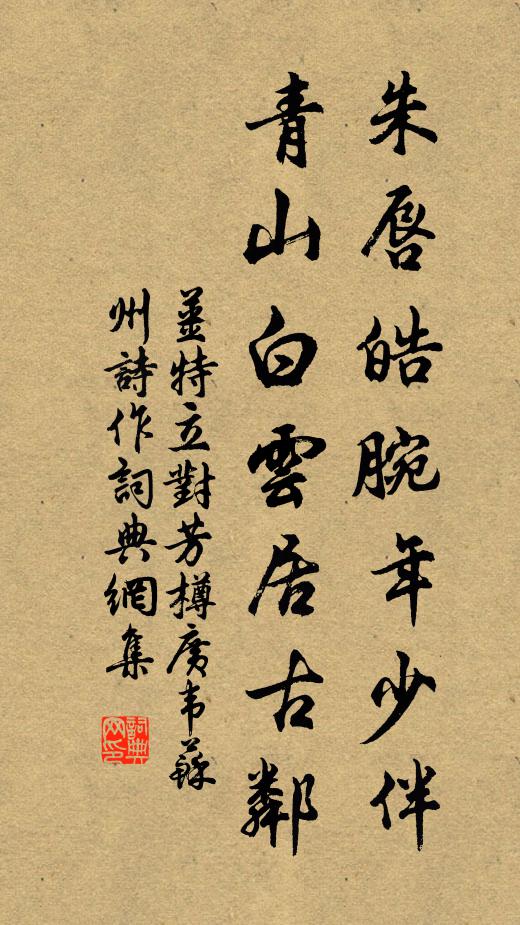 朱唇皓腕年少伴
青山白雲居古鄰
姜特立對芳樽廣韦蘇
州詩作詞典網集
詞典网印